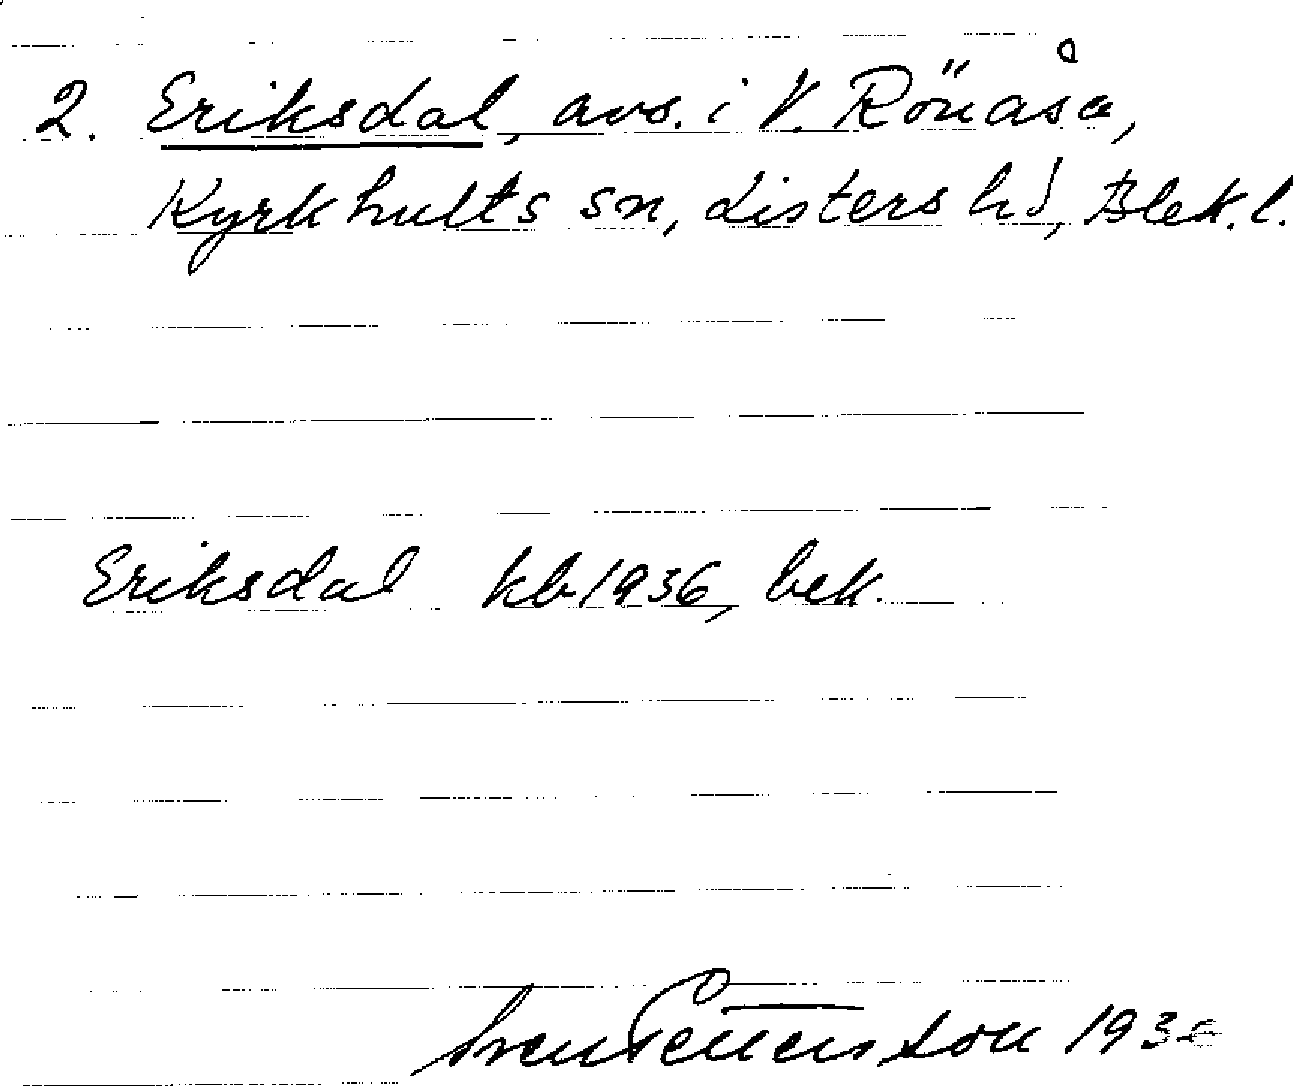 2. Eriksdal, avs. i V. Rönåsa,
Kyrkhults sn, Listers hd, Blek. l.
Eriksdal kb 1936, bek.
Sven Pettersson